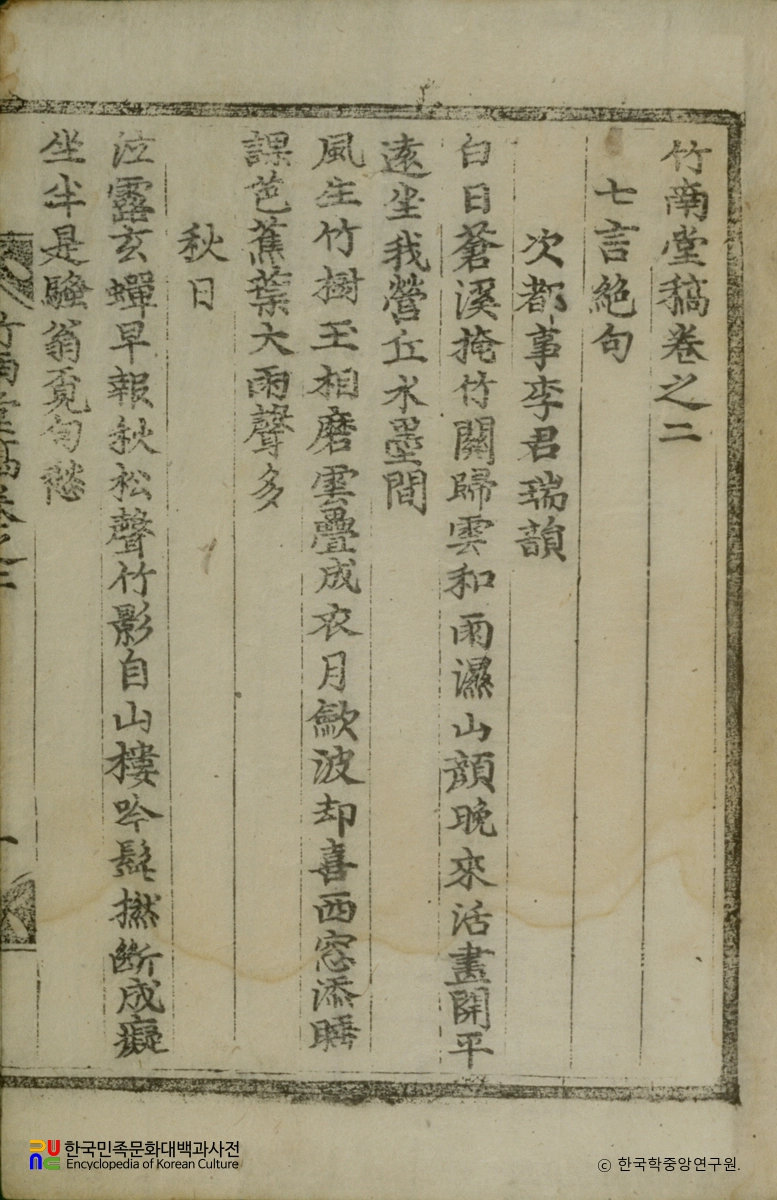 竹南堂稿卷之二
七言絶句
次都事李君瑞韻
白日蒼溪掩竹關歸雲和雨濕山顔晩來活畫開平
遠坐我營丘水墨間
風生竹樹玉相磨雲疊成衣月歛波却喜西窓添睡
課芭蕉葉大雨聲多
秋日
泣露玄蟬早報秋松聲竹影自山樓吟髭撚斷成癡
坐半是騷翁覓句愁
竹南堂稿卷之二
一
한국민족문화대백과사전
Encyclopedia of Korean Culture
ⓒ 한국학중앙연구원.